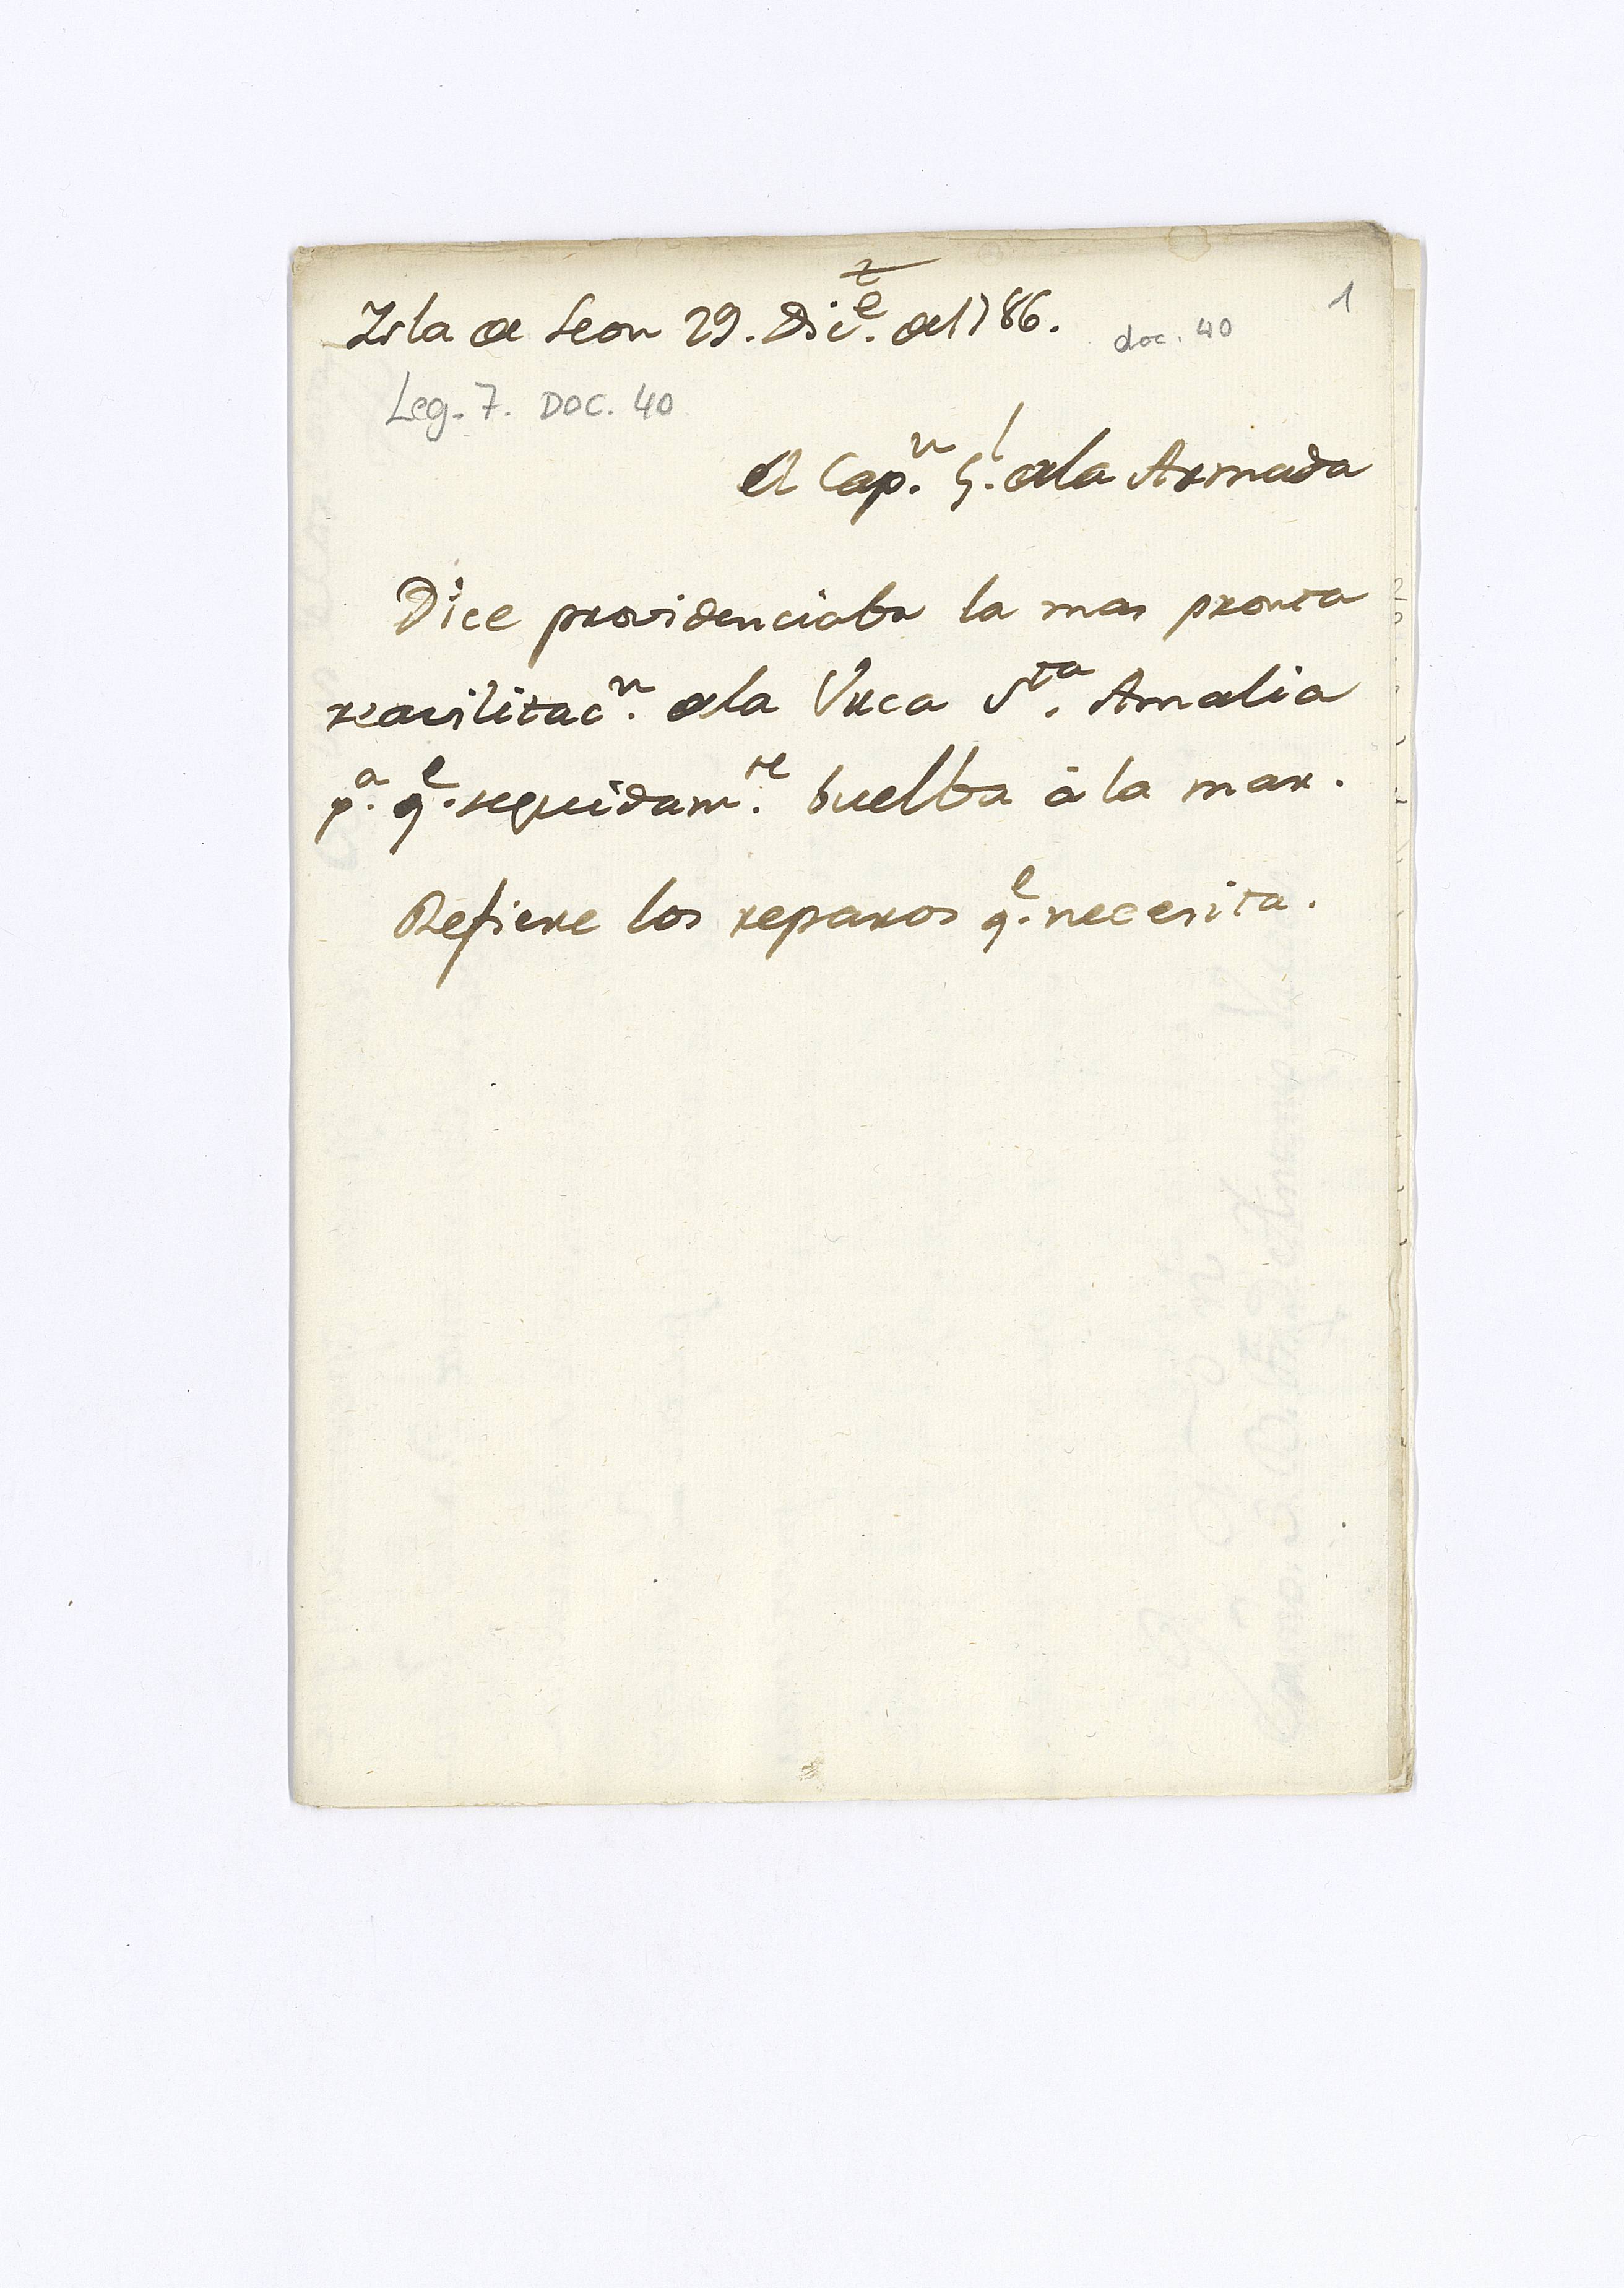 1
Isla de Leon 29. Dic.e de 1786.
doc. 40
Leg. 7. DOC. 40
El Cap.n G.l de la Armada
Dice providenciaba la mas pronta
reavilitac.n de la Vrca S.ta Amalia
p.a q.e seguidam.te buelba à la mar.
Refiere los reparos q.e necesita.